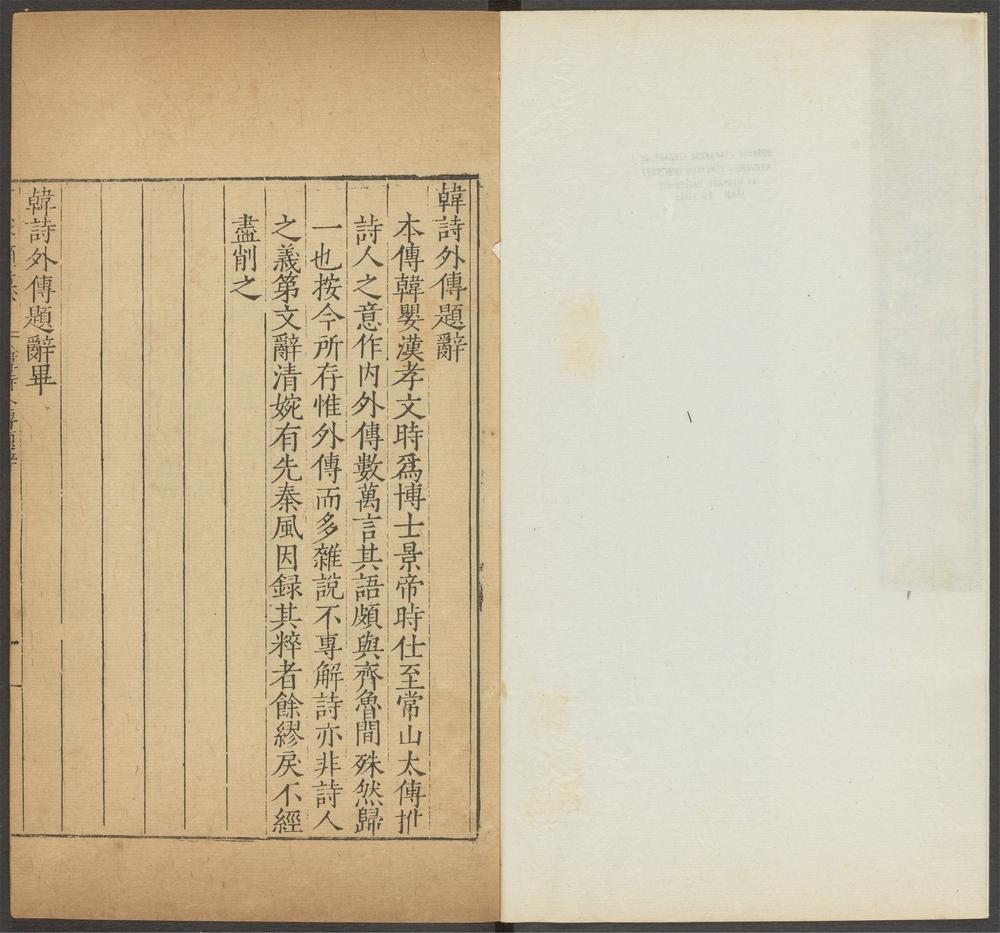 韓詩外傳題辭
本傳韓嬰漢孝文時爲博士景帝時仕至常山太傅推
詩人之意作内外傳數萬言其語頗與齊魯間殊然歸
一也按今所存惟外傳而多雜說不專解詩亦非詩人
之義第文辭清婉有先秦風因録其粹者餘繆戾不經
盡削之
韓詩外傳題辭畢